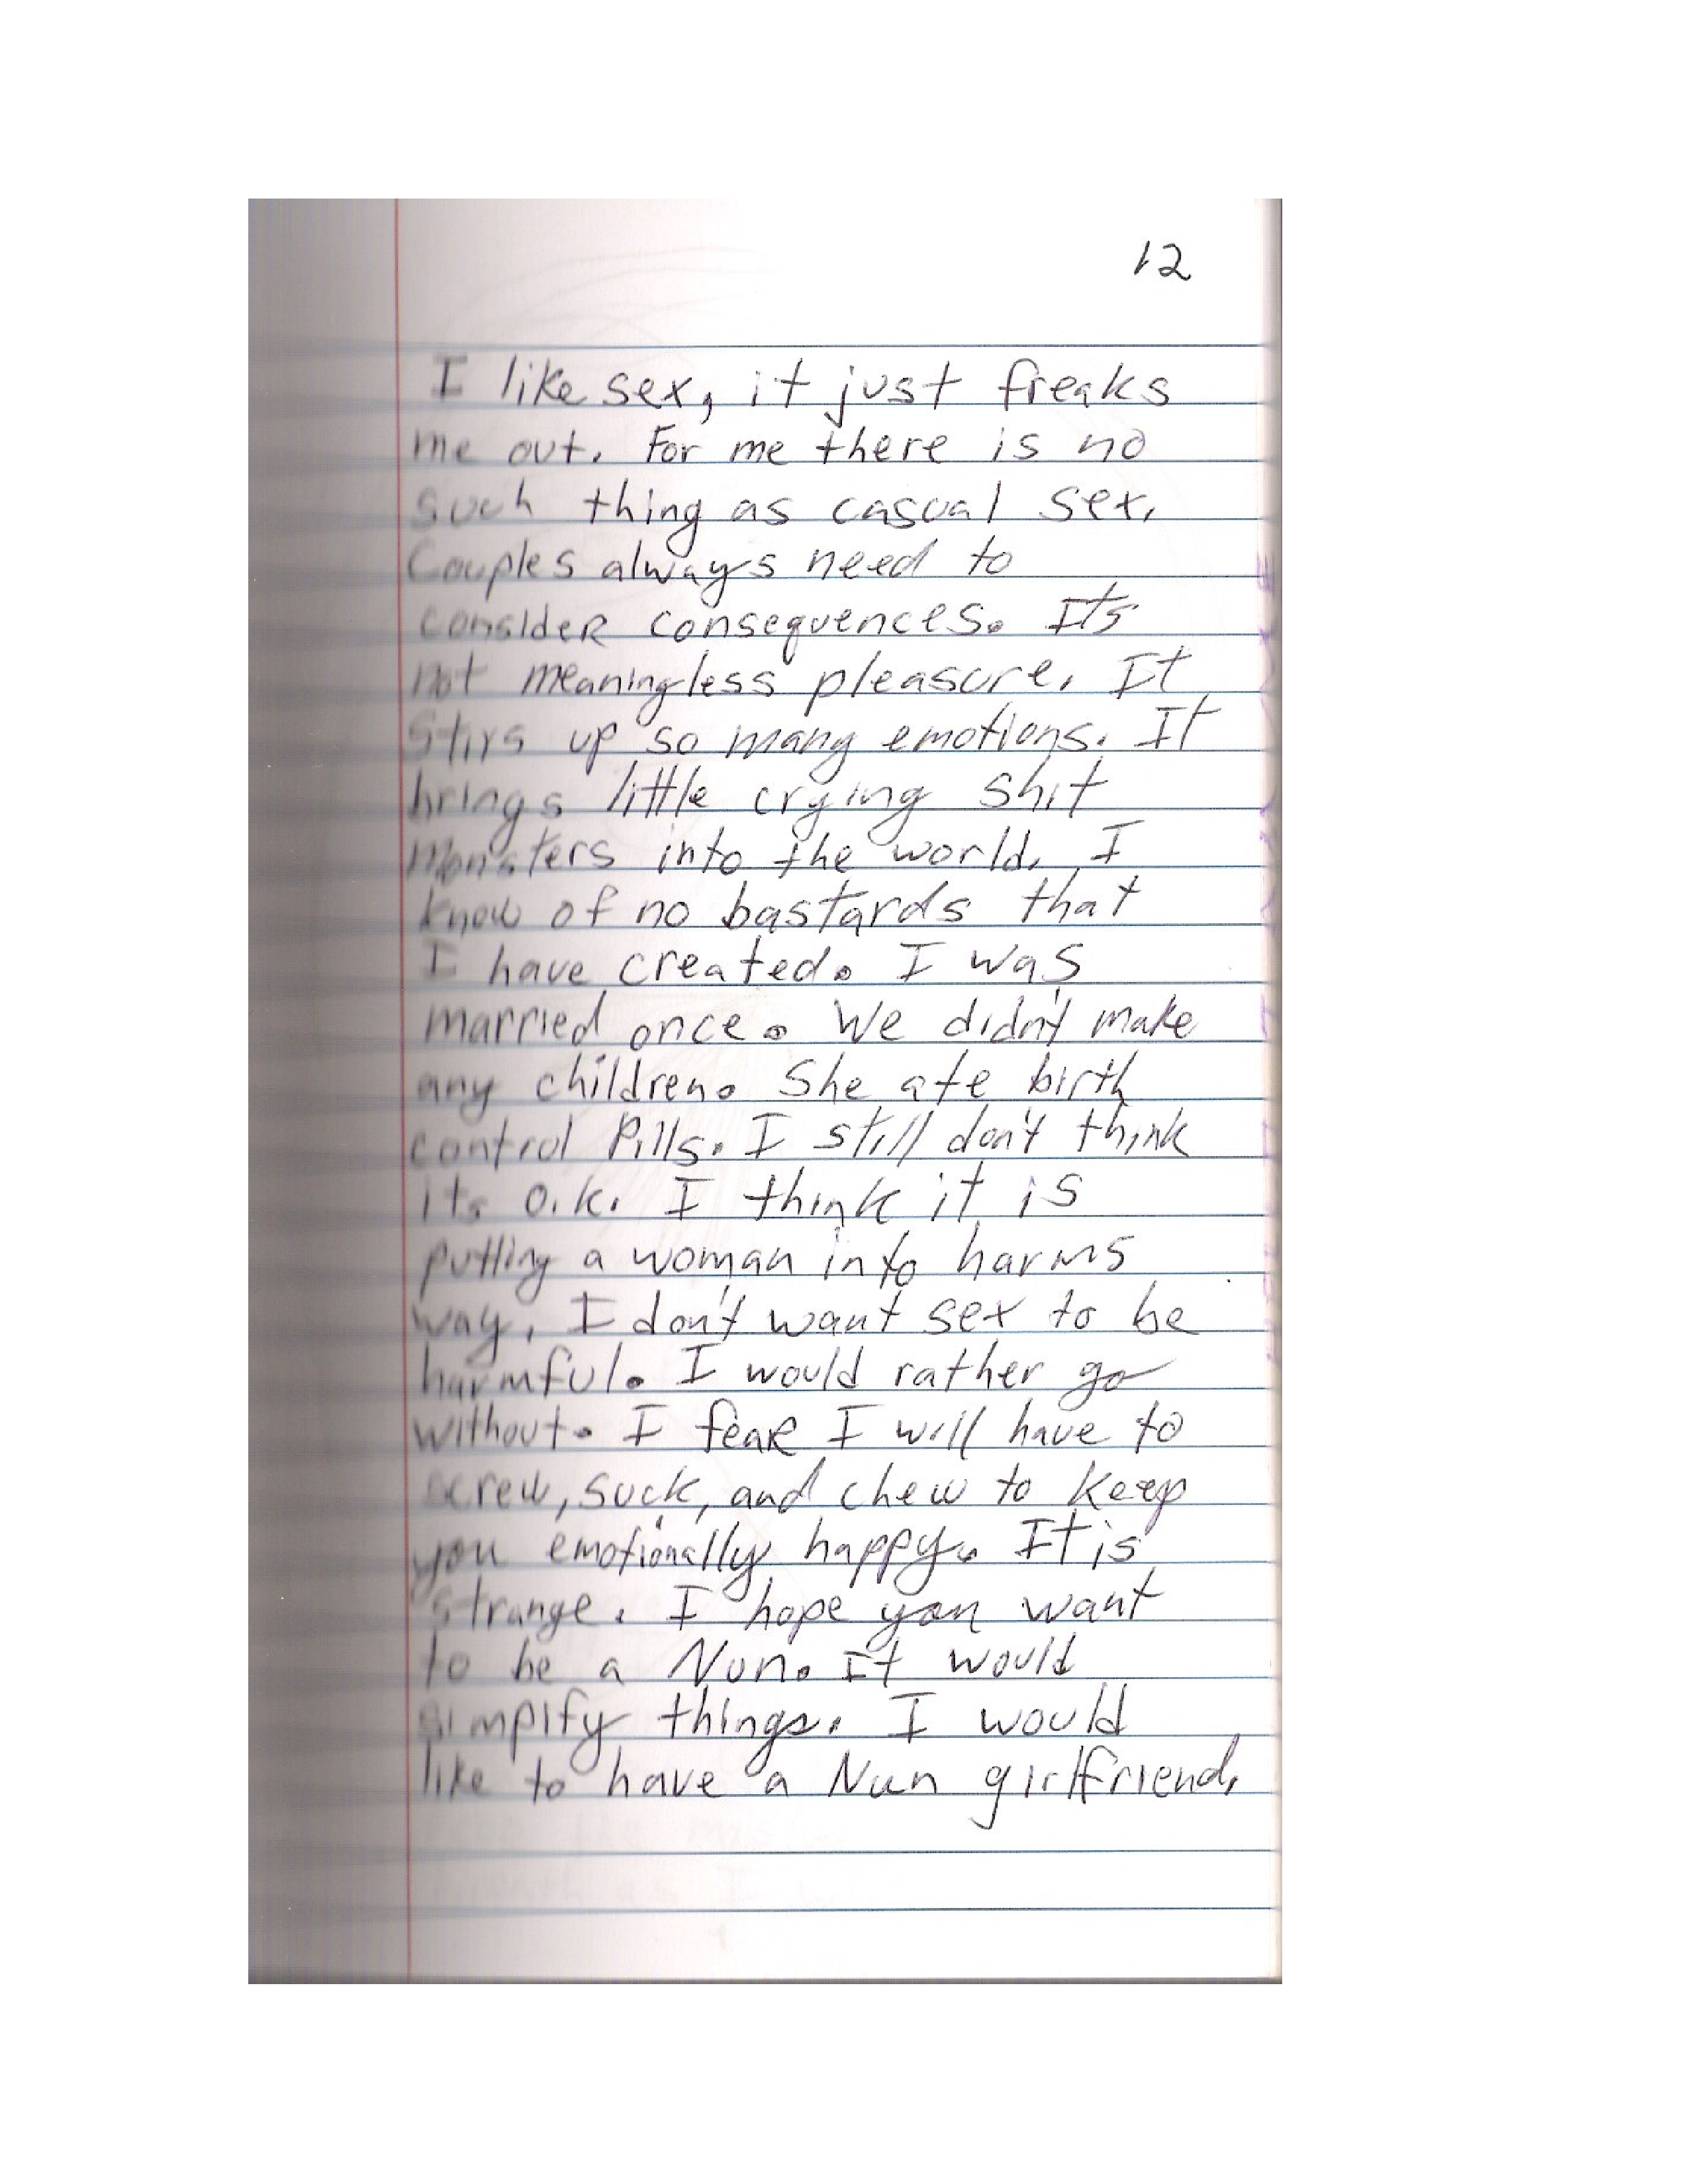 12
I like sex, it just freaks
me out. For me there is no
such thing as casual sex.
Couples always need to
consider consequences. Its
not meaningless pleasure. It
stirs up so many emotions. It
brings little crying shit
monsters into the world. I
know of no bastards that
I have created. I was
married once. We didn't make
any children. She ate birth
control Pills. I still don't think
its O.K. I think it is
putting a woman into harms
way. I don't want sex to be
harmful. I would rather go
without. I fear I will have to
screw, suck, and chew to keep
you emotionally happy. It is
strange. I hope you want
to be a Nun. It would
simpify things. I would
like to have a Nun girlfriend.